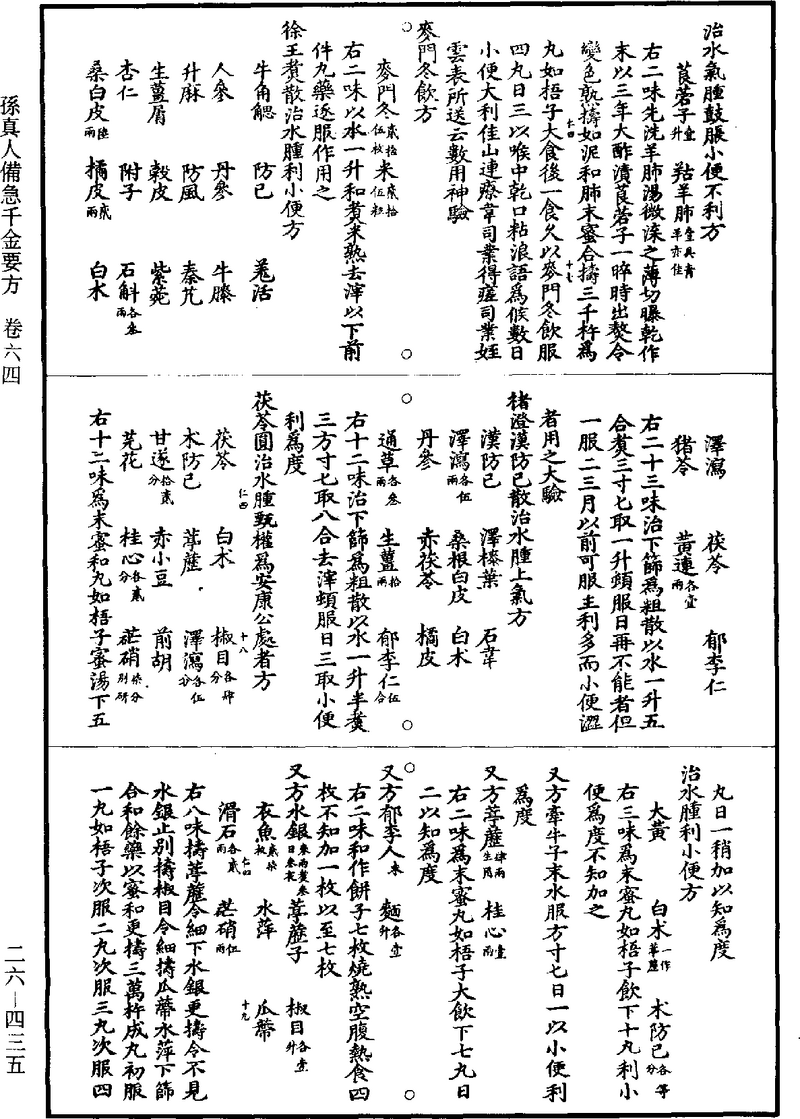 治水氣腫鼓脹小便不利方
莨菪子壹升 羖羊肺壹具青羊亦佳
右二味先洗羊肺湯微渫之薄切曝乾作
末以三年大酢漬莨菪子一晬時出熬令
變色熟擣如泥和肺末蜜合擣三千杵爲
丸如梧子大食後一食久以麥門冬飲服
四丸日三以喉中乾口粘浪語爲候數日
小便大利佳山連療韋司業得瘥司業姪
雲表所送云數用神驗
麥門冬飲方
麥門冬貳拾伍枚 米貳拾伍粒
右二味以水一升和煑米熟去滓以下前
件九藥逐服作用之
徐王煑散治水腫利小便方
牛角䚡 防己 羌活
人參 丹參 牛膝
升麻 防風 秦艽
生薑屑 穀皮 紫菀
杏仁 附子 石斛各叁兩
桑白皮陸兩 橘皮貳兩 白朮
澤瀉 茯苓 郁李仁
猪苓 黃連各壹兩
右二十三味治下篩爲粗散以水一升五
合煑三寸匕取一升頓服日再不能者但
一服二三月以前可服主利多而小便澀
者用之大驗
楮澄漢防已散治水腫上氣方
漢防已 澤㯶葉 石韋
澤瀉各伍兩 桑根白皮 白朮
丹參 赤茯苓 橘皮
通草各叁兩 生薑拾兩 郁李仁伍合
右十二味治下篩爲粗散以水一升半煑
三方寸匕取八合去滓頓服日三取小便
利爲度
茯苓圓治水腫甄權爲安康公處者方
茯苓 白朮 椒目各肆分
木防已 葶藶 澤瀉各伍分
甘遂拾貳分 赤小豆 前胡
芫花 桂心各貳分 芒硝柒分別研
右十二味爲末蜜和丸如梧子蜜湯下五
丸日一稍加以知爲度
治水腫利小便方
大黃 白朮一作葶藶 木防已各等分
右三味爲末蜜丸如梧子飲下十丸利小
便爲度不知加之
又方牽牛子末水服方寸匕日一以小便利
爲度
又方葶藶肆兩生用 桂心壹兩
右二味爲末蜜丸如梧子大飲下七九日
二以知爲度
又方郁李人末 麵各壹升
右二味和作餅子七枚燒熟空腹熱食四
枚不知加一枚以至七枚
又方水銀叁兩煑叁日叁夜 葶藶子 椒目各壹升
衣魚貳柒枚 水萍 瓜蔕
滑石各貳兩 芒硝伍兩
右八味擣葶藶令細下水銀更擣令不見
水銀止別擣椒目令細擣瓜蔕水萍下篩
合和餘藥以蜜和更擣三萬杵成丸初服
一九如梧子次服二九次服三九次服四
孫真人備急千金要方 卷六四
二六—四三五